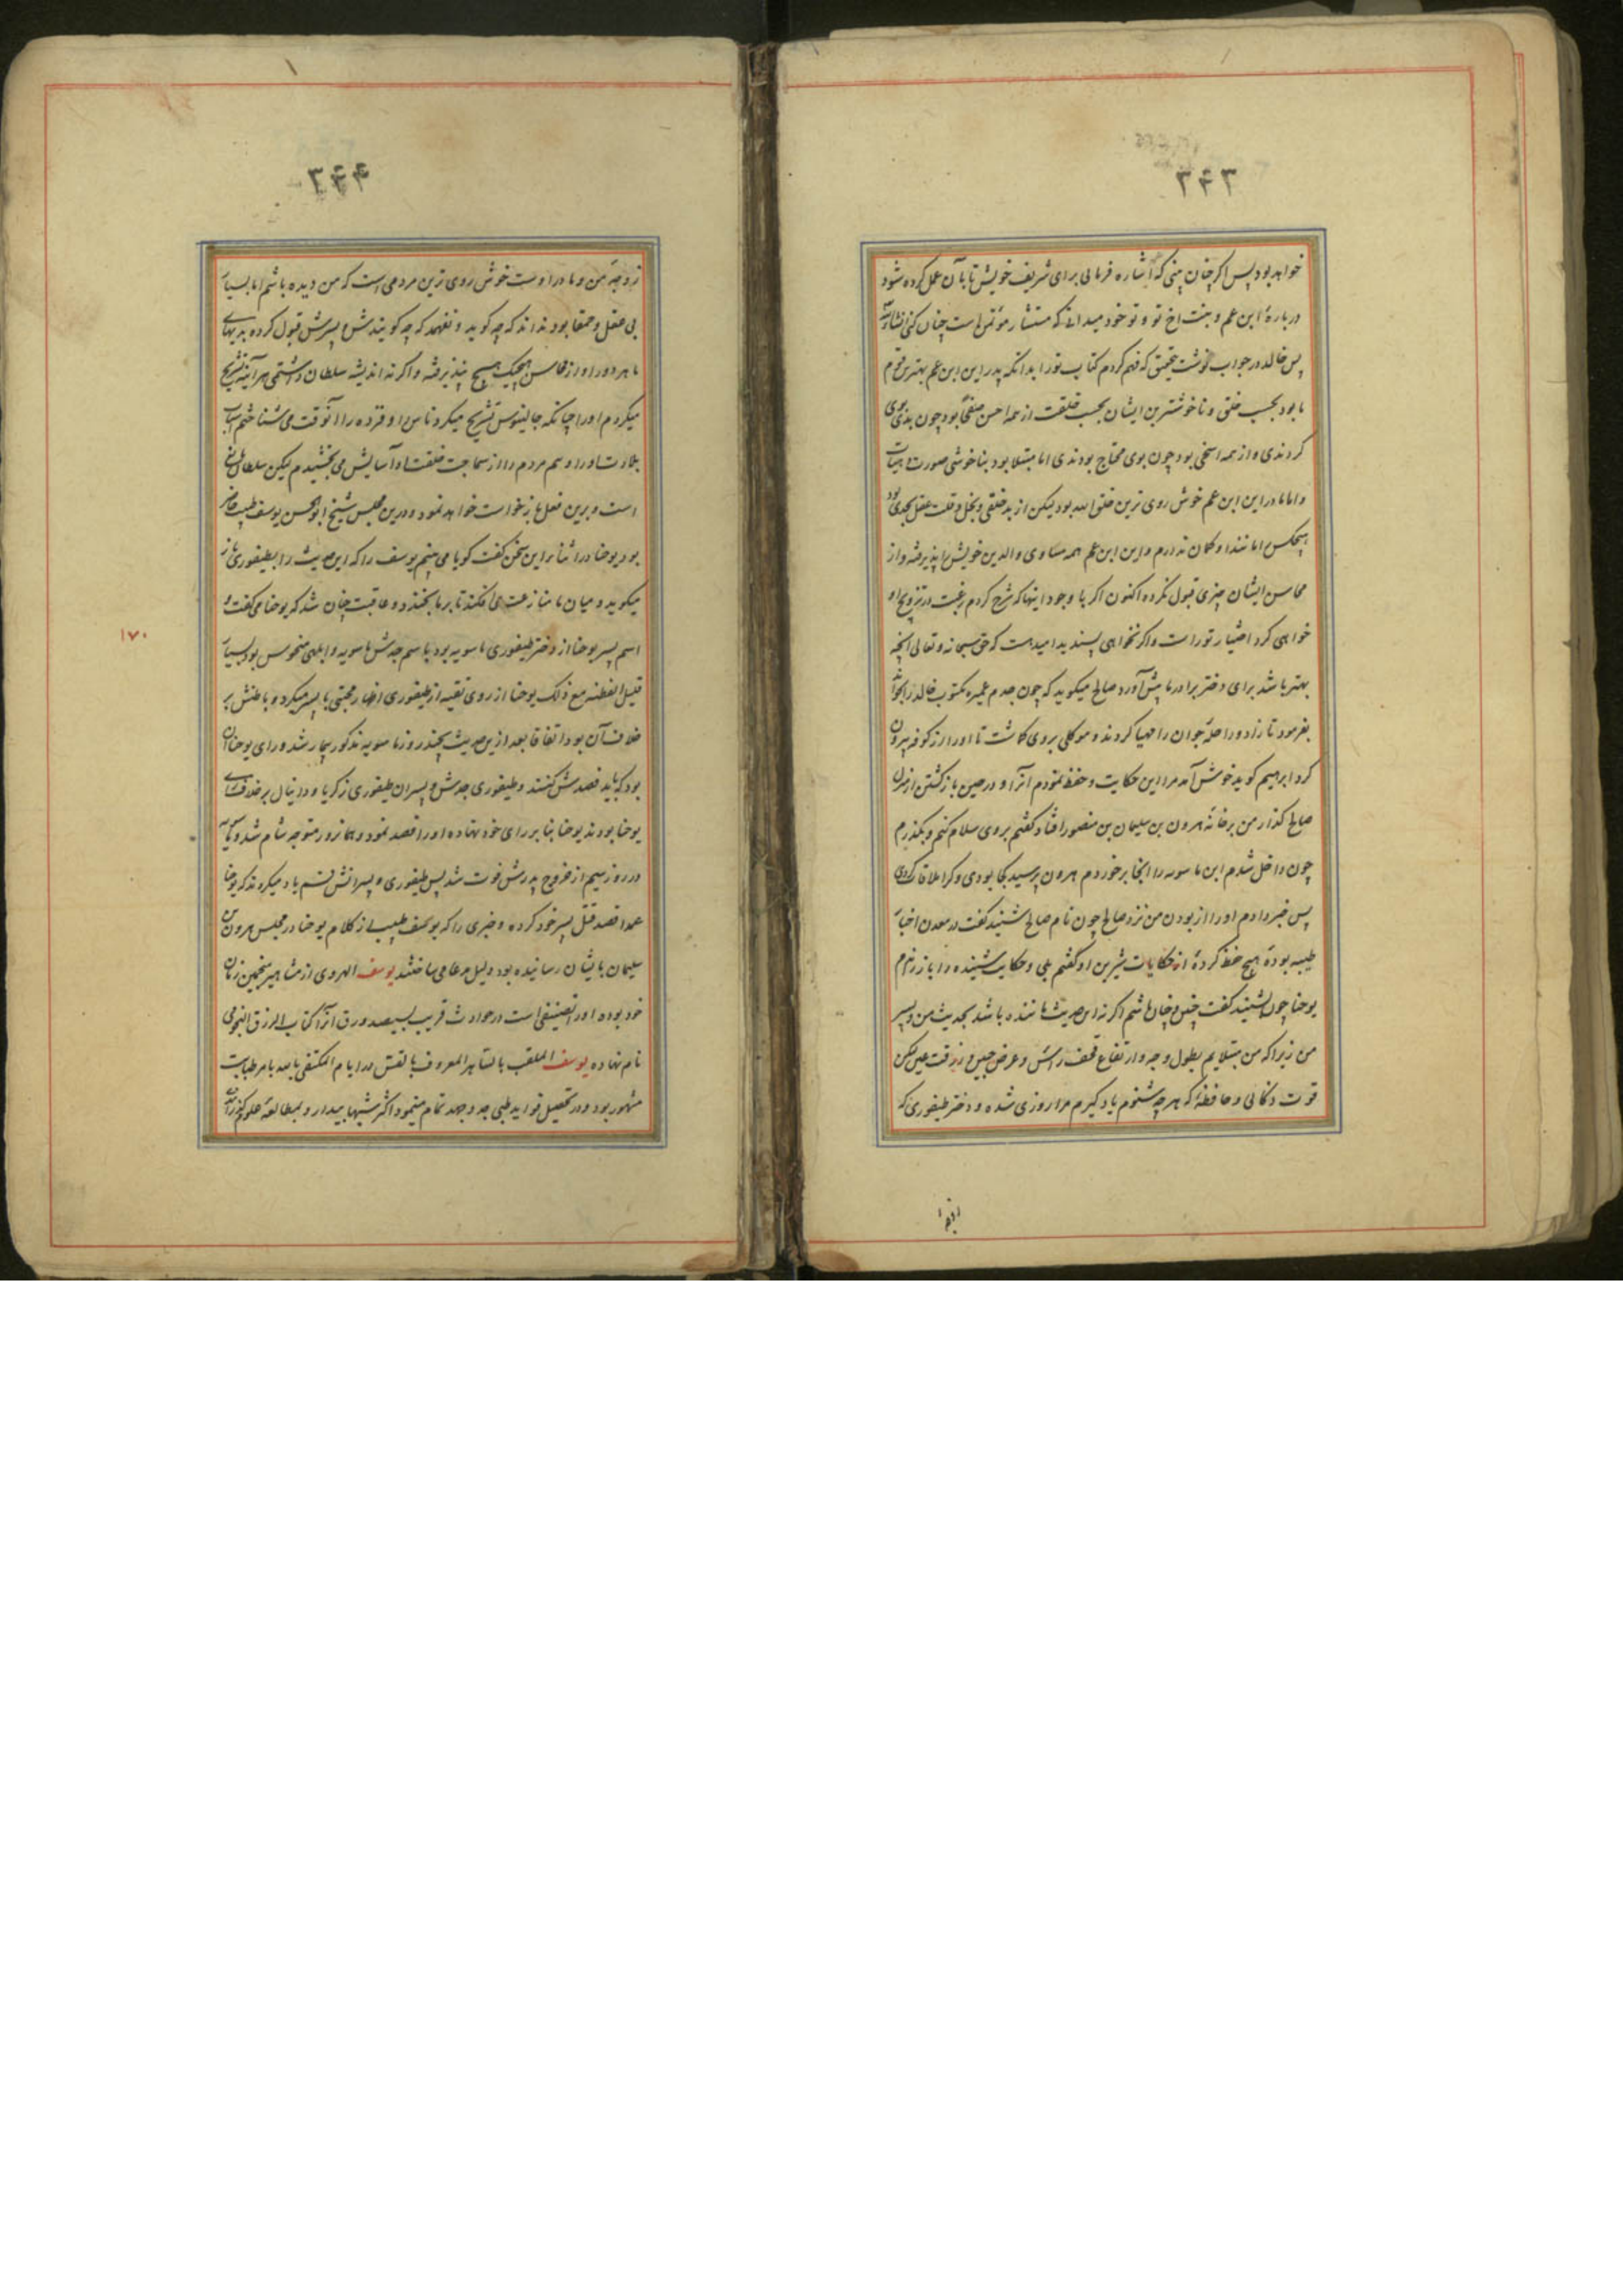 ۳۴۳
خواهد بود پس اگر چنان بینی که اشاره فرمائی برای شریف خویش تا بآن عمل کرده شود
دربارهٔ ابن عم و بنت اخ تو و تو خود میدانی که مستشار مؤتمن است چنان کنی انشاءالله
پس خالد در جواب نوشت بتحقیق که فهم کردم کتاب تو را بدانکه پدر این ابن عم بهترین قوم
ما بود بحسب خلق و ناخوشترین ایشان بحسب خلقت از همه احسن صفحاً بود چون بدی بوی
کردندی و از همه اسخی بود چون بوی محتاج بودندی اما مبتلا بود بناخوشی صورت و هیات
و اما مادر این ابن عم خوش روی ترین خلق الله بود لیکن از بدخلقی و بخل و قلت عقل بحدی بود
هیچکس را مانند او گمان ندارم و این ابن عم همه مساوی والدین خویش را پذیرفته و از
محاسن ایشان چیزی قبول نکرده اکنون اگر با وجود اینها که شرح کردم رغبت در تزویج او
خواهی کرد اختیار تو راست و اگر نخواهی پسندید امید هست که حق سبحانه و تعالی آنچه
بهتر باشد برای دختر برادر ما پیش آورد صالح میگوید که چون جدم عمیره مکتوب خالد را بخواند
بفرمود تا زاد و راحلهٔ جوان را مهیا کردند و موکلی بروی گماشت تا او را از کوفه بیرون
کرد ابرهیم گوید خوش آمد مرا این حکایت و حفظ نمودم آنرا و در حین بازگشتن از منزل
صالح گذار من بر خانهٔ هرون بن سلیمان بن منصور افتاد گفتم بروی سلام کنم و بگذرم
چون داخل شدم ابن ماسویه را آنجا برخوردم هرون پرسید کجا بودی و کرا ملاقات کردی
پس خبر دادم او را از بودن من نزد صالح چون نام صالح شنید گفت در معدن اخبار
طیبه بودهٔ هیچ حفظ کردهٔ از حکایات شیرین او گفتم بلی و حکایت شنیده را باز راندم
یوحنا چون بشنید گفت چنین و چنان باشم اگر نه این حدیث ماننده باشد بحدیث من و پسر
من زیرا که من مبتلایم بطول وجه و ارتفاع قحف رأس و عرض جبین و زرقت عین لیکن
قوت ذکائی و حافظهٔ که هر چه شنوم یاد گیرم مرا روزی شده و دختر طیفوری که
۳۴۴
زوجهٔ من و مادر اوست خوش روی ترین مردمی است که من دیده باشم اما بسیار
بی عقل و حمقا بود نداند که چه گوید و نفهمد که چه گویندش و پسرش قبول کرده بدیهای
ما هر دو را و از محاسن هیچیک هیچ نپذیرفته و اگر نه اندیشه سلطان داشتمی هرآینه تشریح
میکردم او را چنانکه جالینوس تشریح میکرد ناس و قرده را آنوقت می شناختم اسباب
بلادت او را و هم مردم را از سماجت خلقت او آسایش می بخشیدم لیکن سلطان مانع
است و برین فعل بازخواست خواهد نمود و درین مجلس شیخ ابوالحسن یوسف طبیب حاضر
بود یوحنا در اثناء این سخن گفت گویا می بینم یوسف را که این حدیث را بطیفوری باز
میگوید و میان ما منازعت می افکند تا بر ما بخندد و عاقبت چنان شد که یوحنا می گفت و
اسم پسر یوحنا از دختر طیفوری ماسویه بود باسم جدش ماسویه و ابلهی منحوس بود بسیار
قلیل الفطنه مع ذلک یوحنا از روی تقیه از طیفوری اظهار محبتی با پسر میکرد و باطنش بر
خلاف آن بود اتفاقا بعد ازین حدیث بچند روز ماسویه مذکور بیمار شد و رای یوحنا آن
بود که باید فصدش کنند و طیفوری جدش و پسران طیفوری زکریا و دانیال بر خلاف رای
یوحنا بودند یوحنا بنا بر رای خود نهاده او را فصد نمود و همانروز متوجه شام شد و ماسویه
در روز سیم از خروج پدرش فوت شد پس طیفوری و پسرانش قسم یاد میکردند که یوحنا
عمدا قصد قتل پسر خود کرده و خبری را که یوسف طبیب از کلام یوحنا در مجلس هرون بن
سلیمان بایشان رسانیده بود دلیل مدعا می ساختند یوسف الهروی از مشاهیر منجمین زمان
خود بوده او را تصنیفی است در حوادث قریب بسیصد ورق آنرا کتاب الرزق النجومی
نام نهاده یوسف الملقب بالساهر المعروف بالقس در ایام المکتفی بالله بامر طبابت
مشهور بود و در تحصیل فواید طبی جد و جهد تمام مینمود اکثر شبها بیدار و بمطالعهٔ علوم گذرانیدی
۱۷۰
زوجه